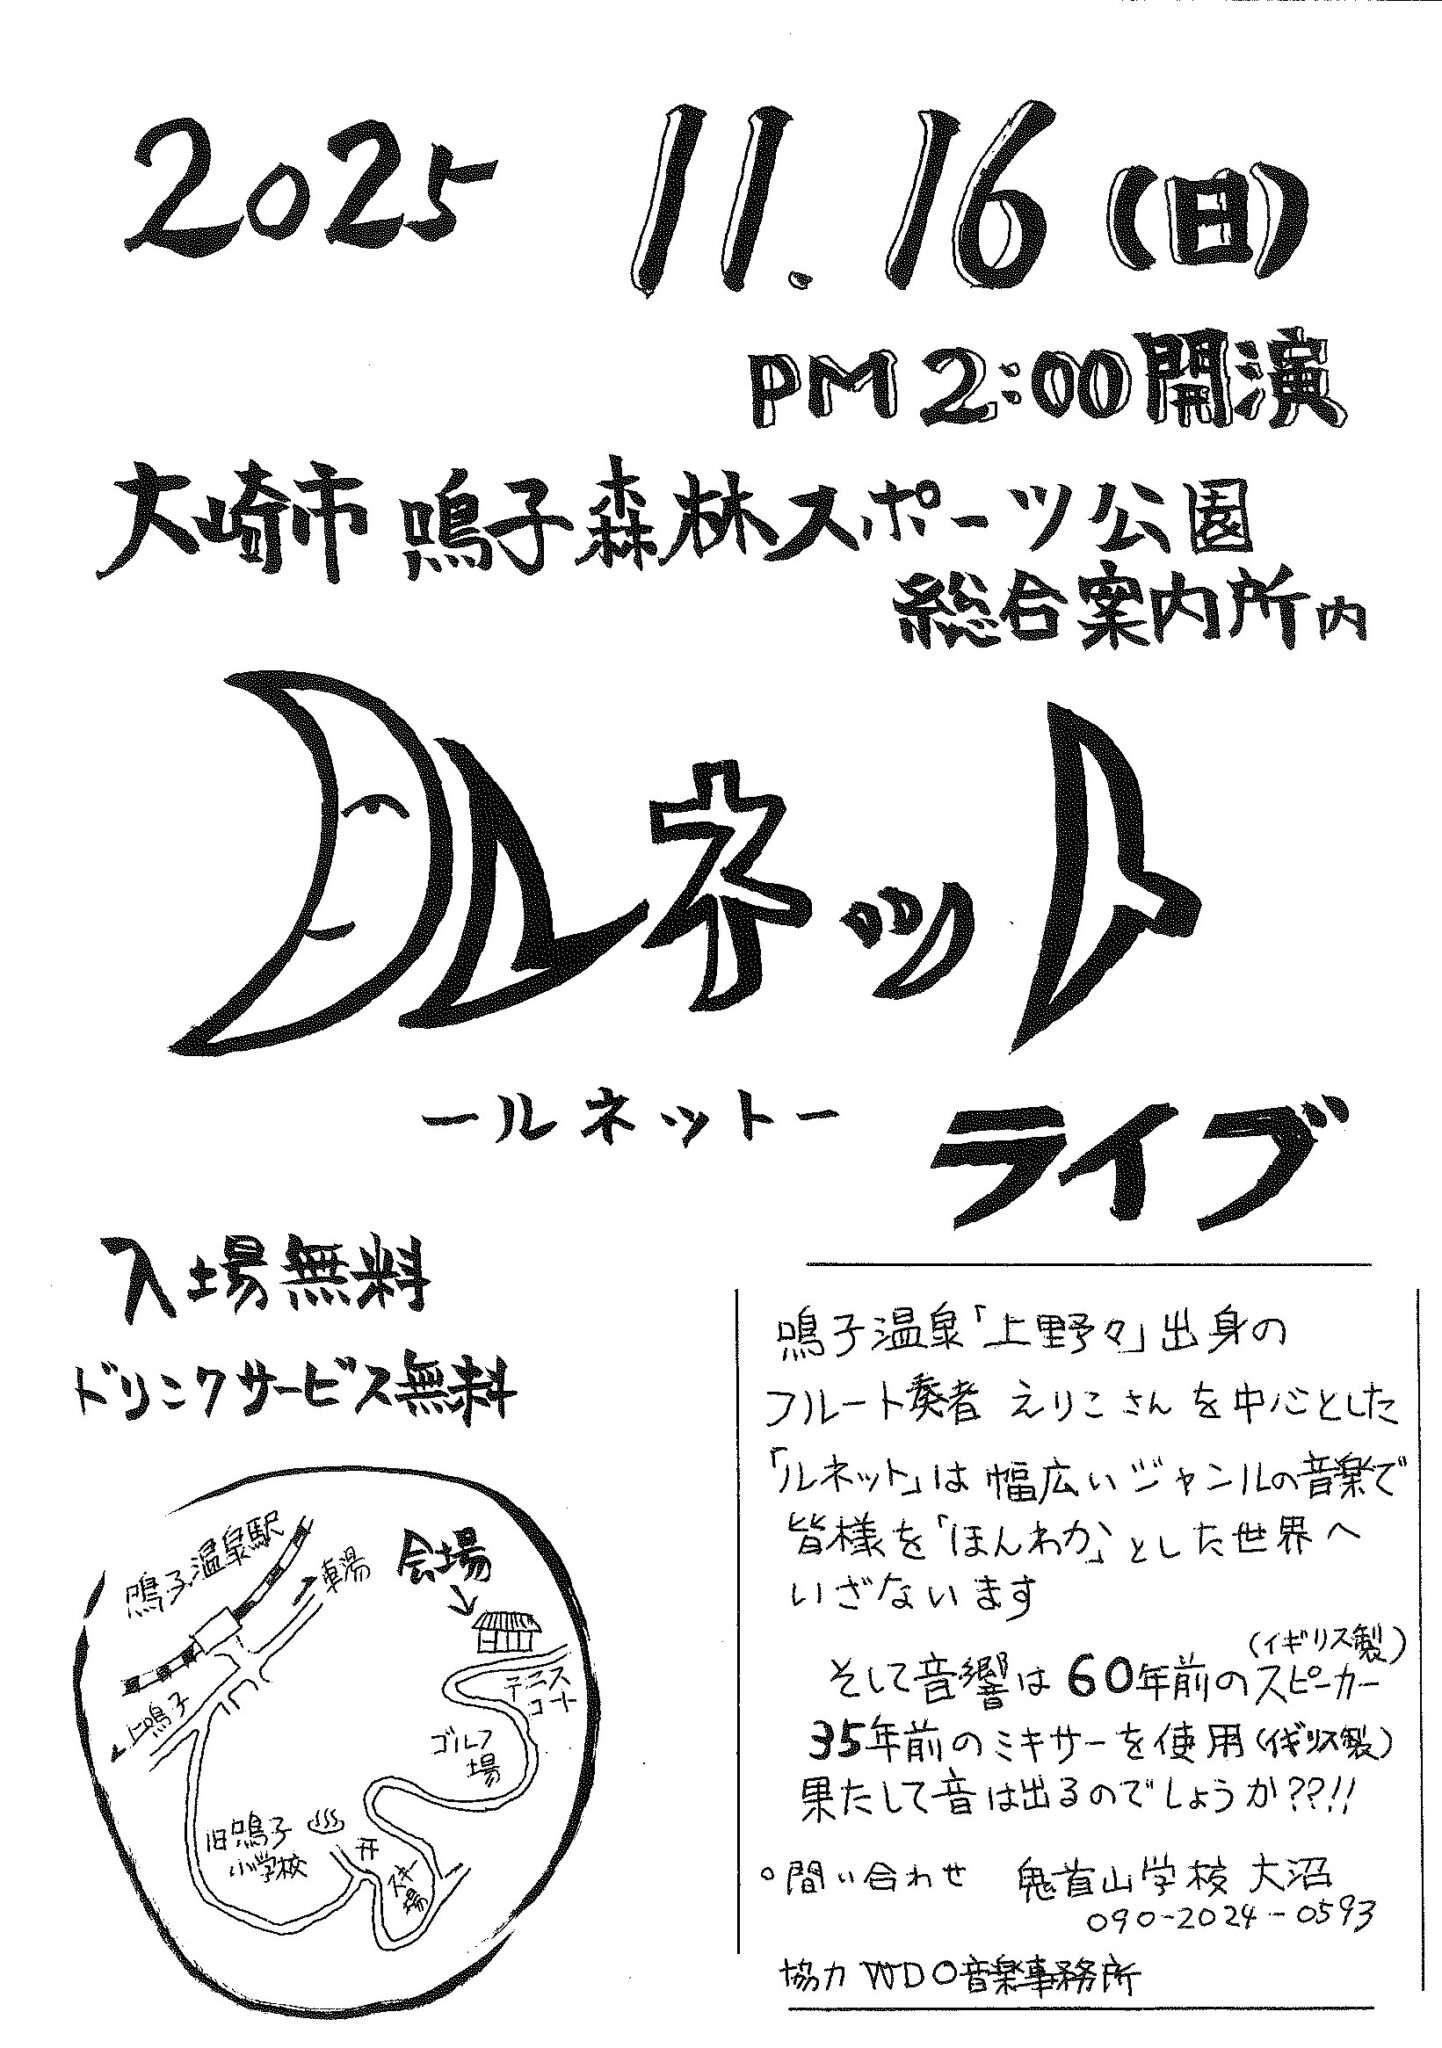 2025 11.16(日)
PM 2:00 開演
大崎市 鳴子森林スポーツ公園
総合案内所内
ルネット
ールネットー
ライブ
入場無料
ドリンクサービス無料
鳴子温泉「上野々」出身の
フルート奏者 えりこさんを中心とした
「ルネット」は 幅広いジャンルの音楽で
皆様を「ほんわか」とした世界へ
いざないます
そして音響は 60年前のスピーカー(イギリス製)
35年前のミキサーを使用(イギリス製)
果たして音は出るのでしょうか??!!
○問い合わせ 鬼首山学校 大沼
090-2024-0593
協力 WDO音楽事務所
鳴子温泉駅
東湯
会場
テニス
コート
上鳴子
ゴルフ
場
旧鳴子
小学校
スキー
場